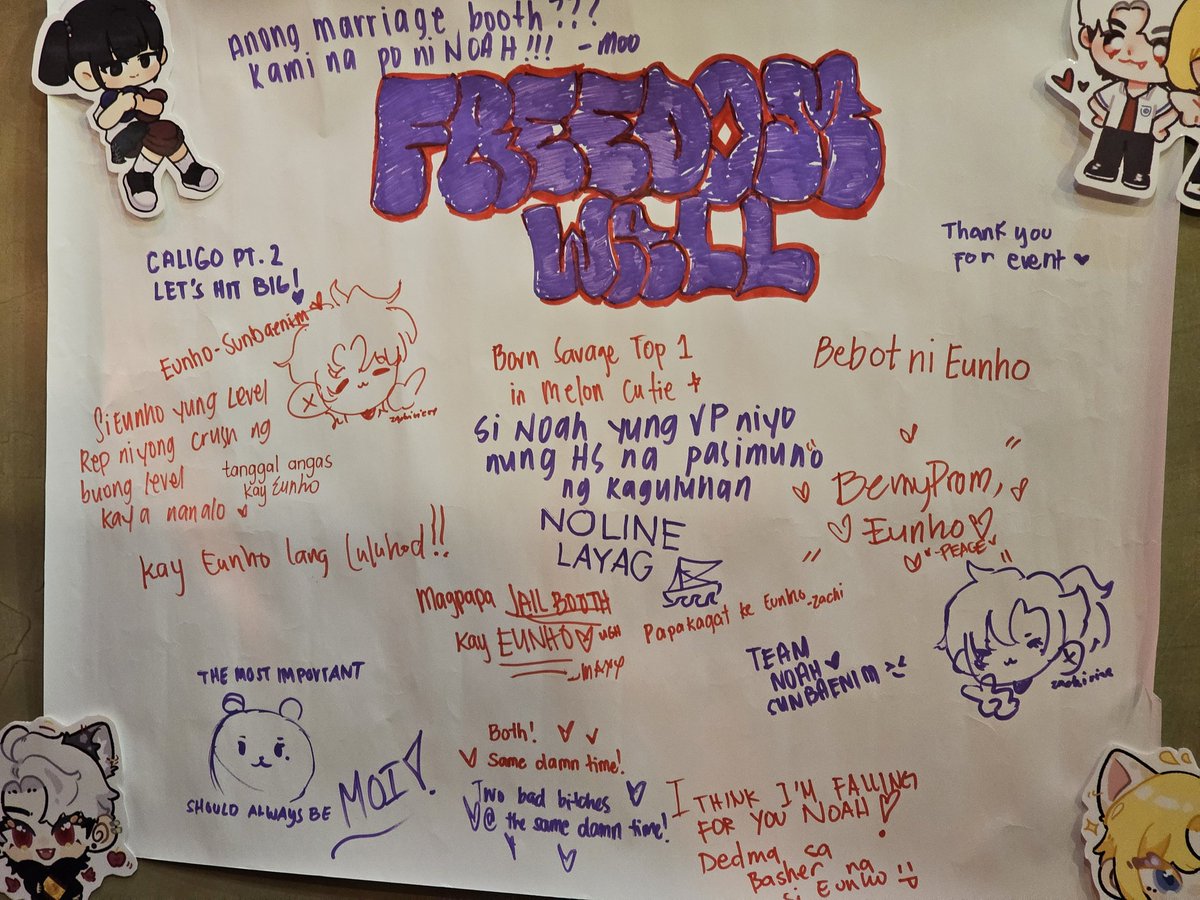 Anong marriage booth???
Kami na po ni NOAH!!! - Moo
FREEDOM
WALL
CALIGO PT. 2
LET'S HIT BIG!
Thank you
for event
Eunho-Sunbaenim
Si Eunho yung Level
Rep niyong crush ng
buong level
kaya nanalo
tanggal angas
kay Eunho
kay Eunho lang luluhod!!
Born Savage Top 1
in Melon Cutie
Si NOAH yung VP niyo
nung HS na pasimuno
ng kaguluhan
NOLINE
LAYAG
Bebot ni Eunho
Be my Prom,
Eunho
-PEACE
Magpapa JAIL BOOTH
kay EUNHO UGH
-MAXY
Papakagat ke Eunho -zachi
TEAM
NOAH
SUNBAENIM
THE MOST IMPORTANT
SHOULD ALWAYS BE MOI!
Both!
same damn time!
Two bad bitches
@ the same damn time!
I THINK I'M FALLING
FOR YOU NOAH!
Dedma sa
Basher na
si Eunho